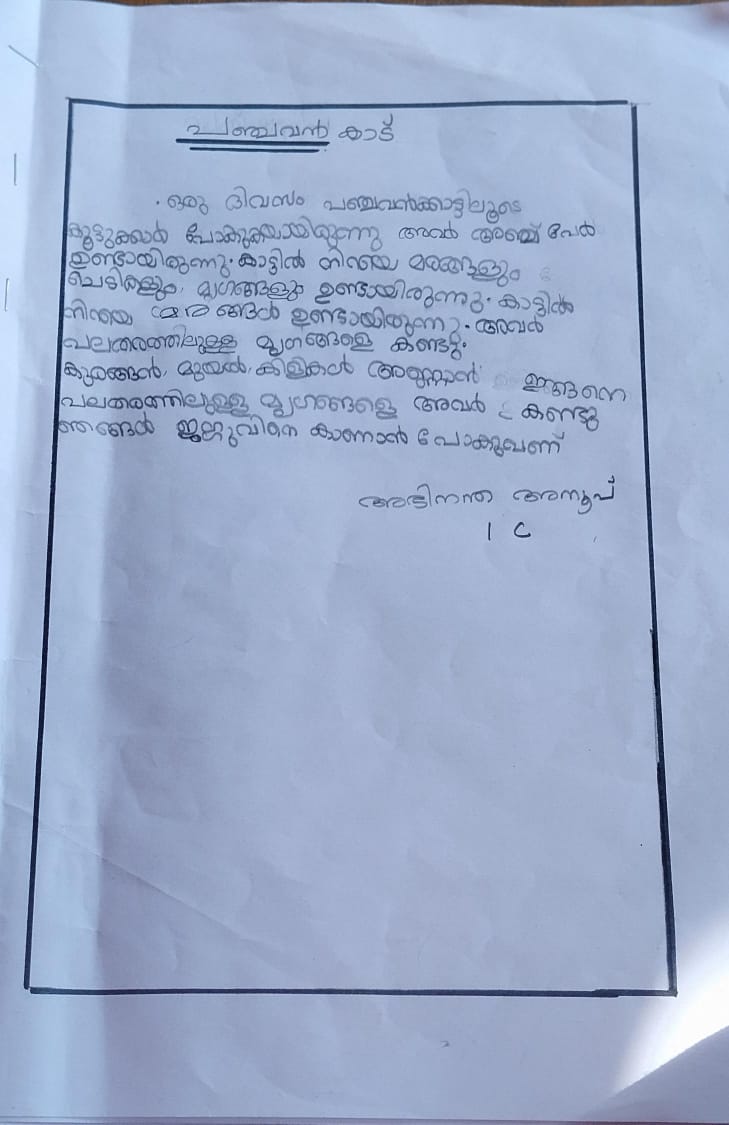 പഞ്ചവൻ കാട്
ഒരു ദിവസം പഞ്ചവൻക്കാട്ടിലൂടെ
കൂട്ടുക്കാർ പോകുകയായിരുന്നു അവർ അഞ്ച് പേർ
ഉണ്ടായിരുന്നു. കാട്ടിൽ നിറയെ മരങ്ങളും
ചെടികളും, മൃഗങ്ങളും ഉണ്ടായിരുന്നു. കാട്ടിൽ
നിറയെ മരങ്ങൾ ഉണ്ടായിരുന്നു. അവർ
പലതരത്തിലുള്ള മൃഗങ്ങളെ കണ്ടു.
കുരങ്ങൻ, മുയൽ, കിളികൾ അണ്ണാൻ ഇങ്ങനെ
പലതരത്തിലുള്ള മൃഗങ്ങളെ അവർ കണ്ടു
ഞങ്ങൾ കാണാൻ പോകുവണ്
അഭിനന്ദ അനൂപ്
1 C